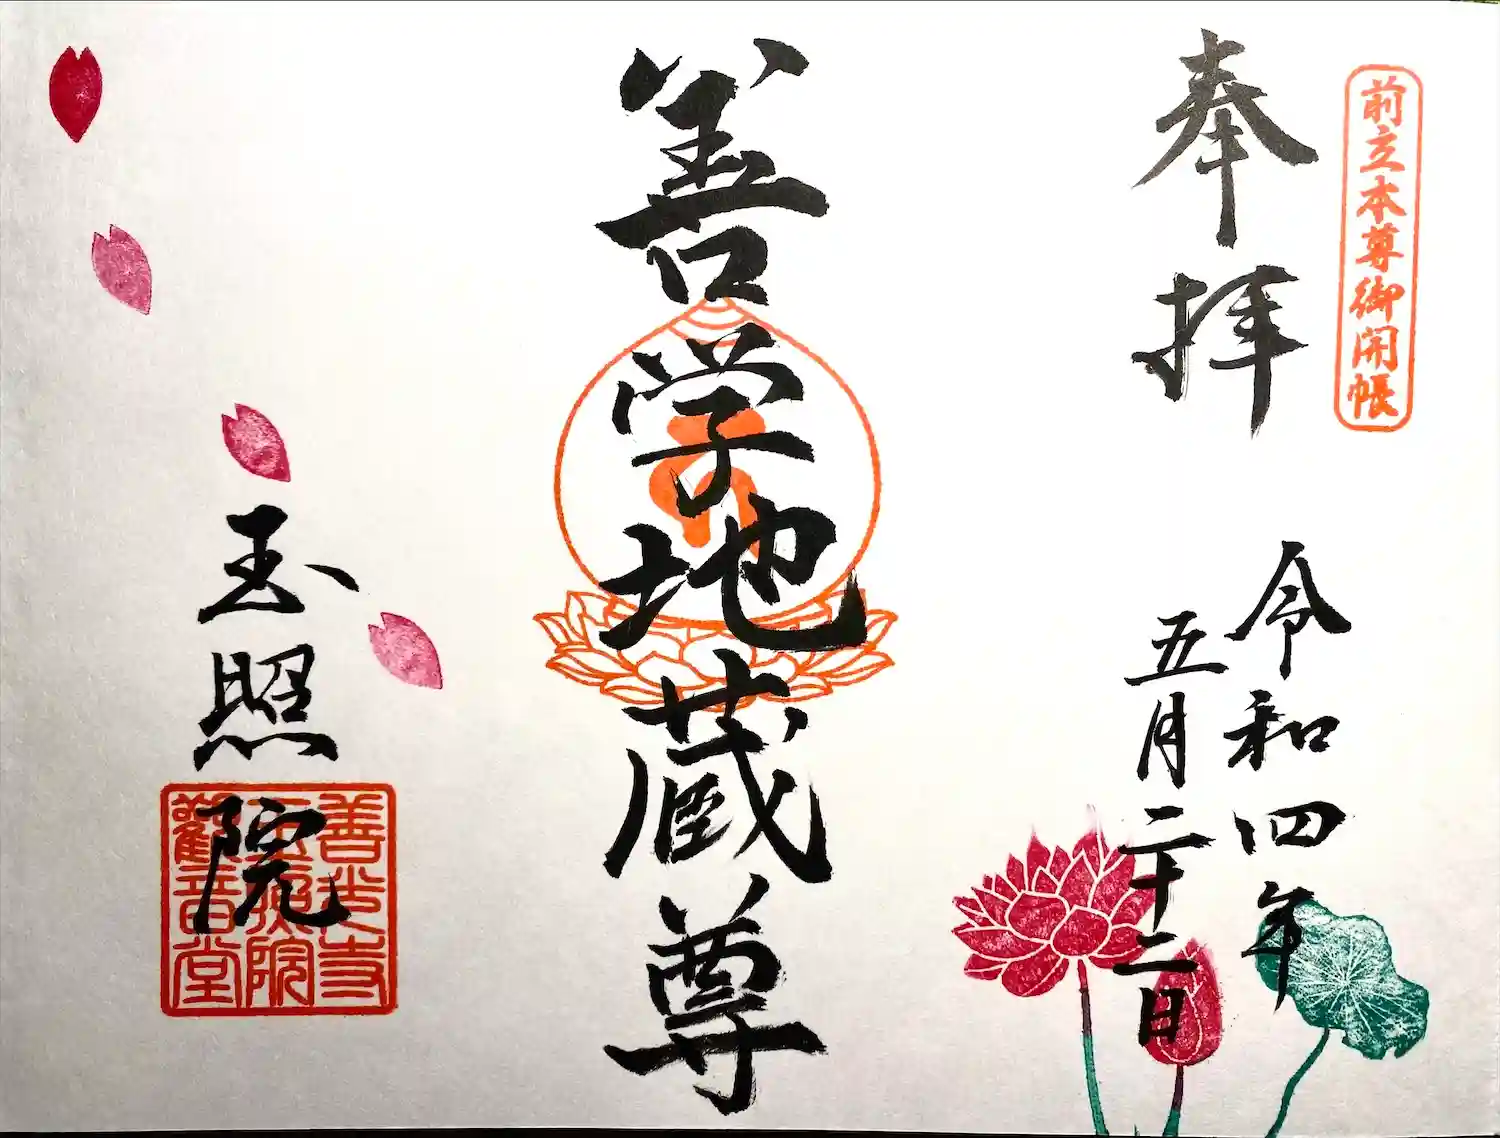 前立本尊御開帳
奉拝
令和四年
五月二十二日
善学地蔵尊
玉照院
善光寺
玉照院
觀音堂